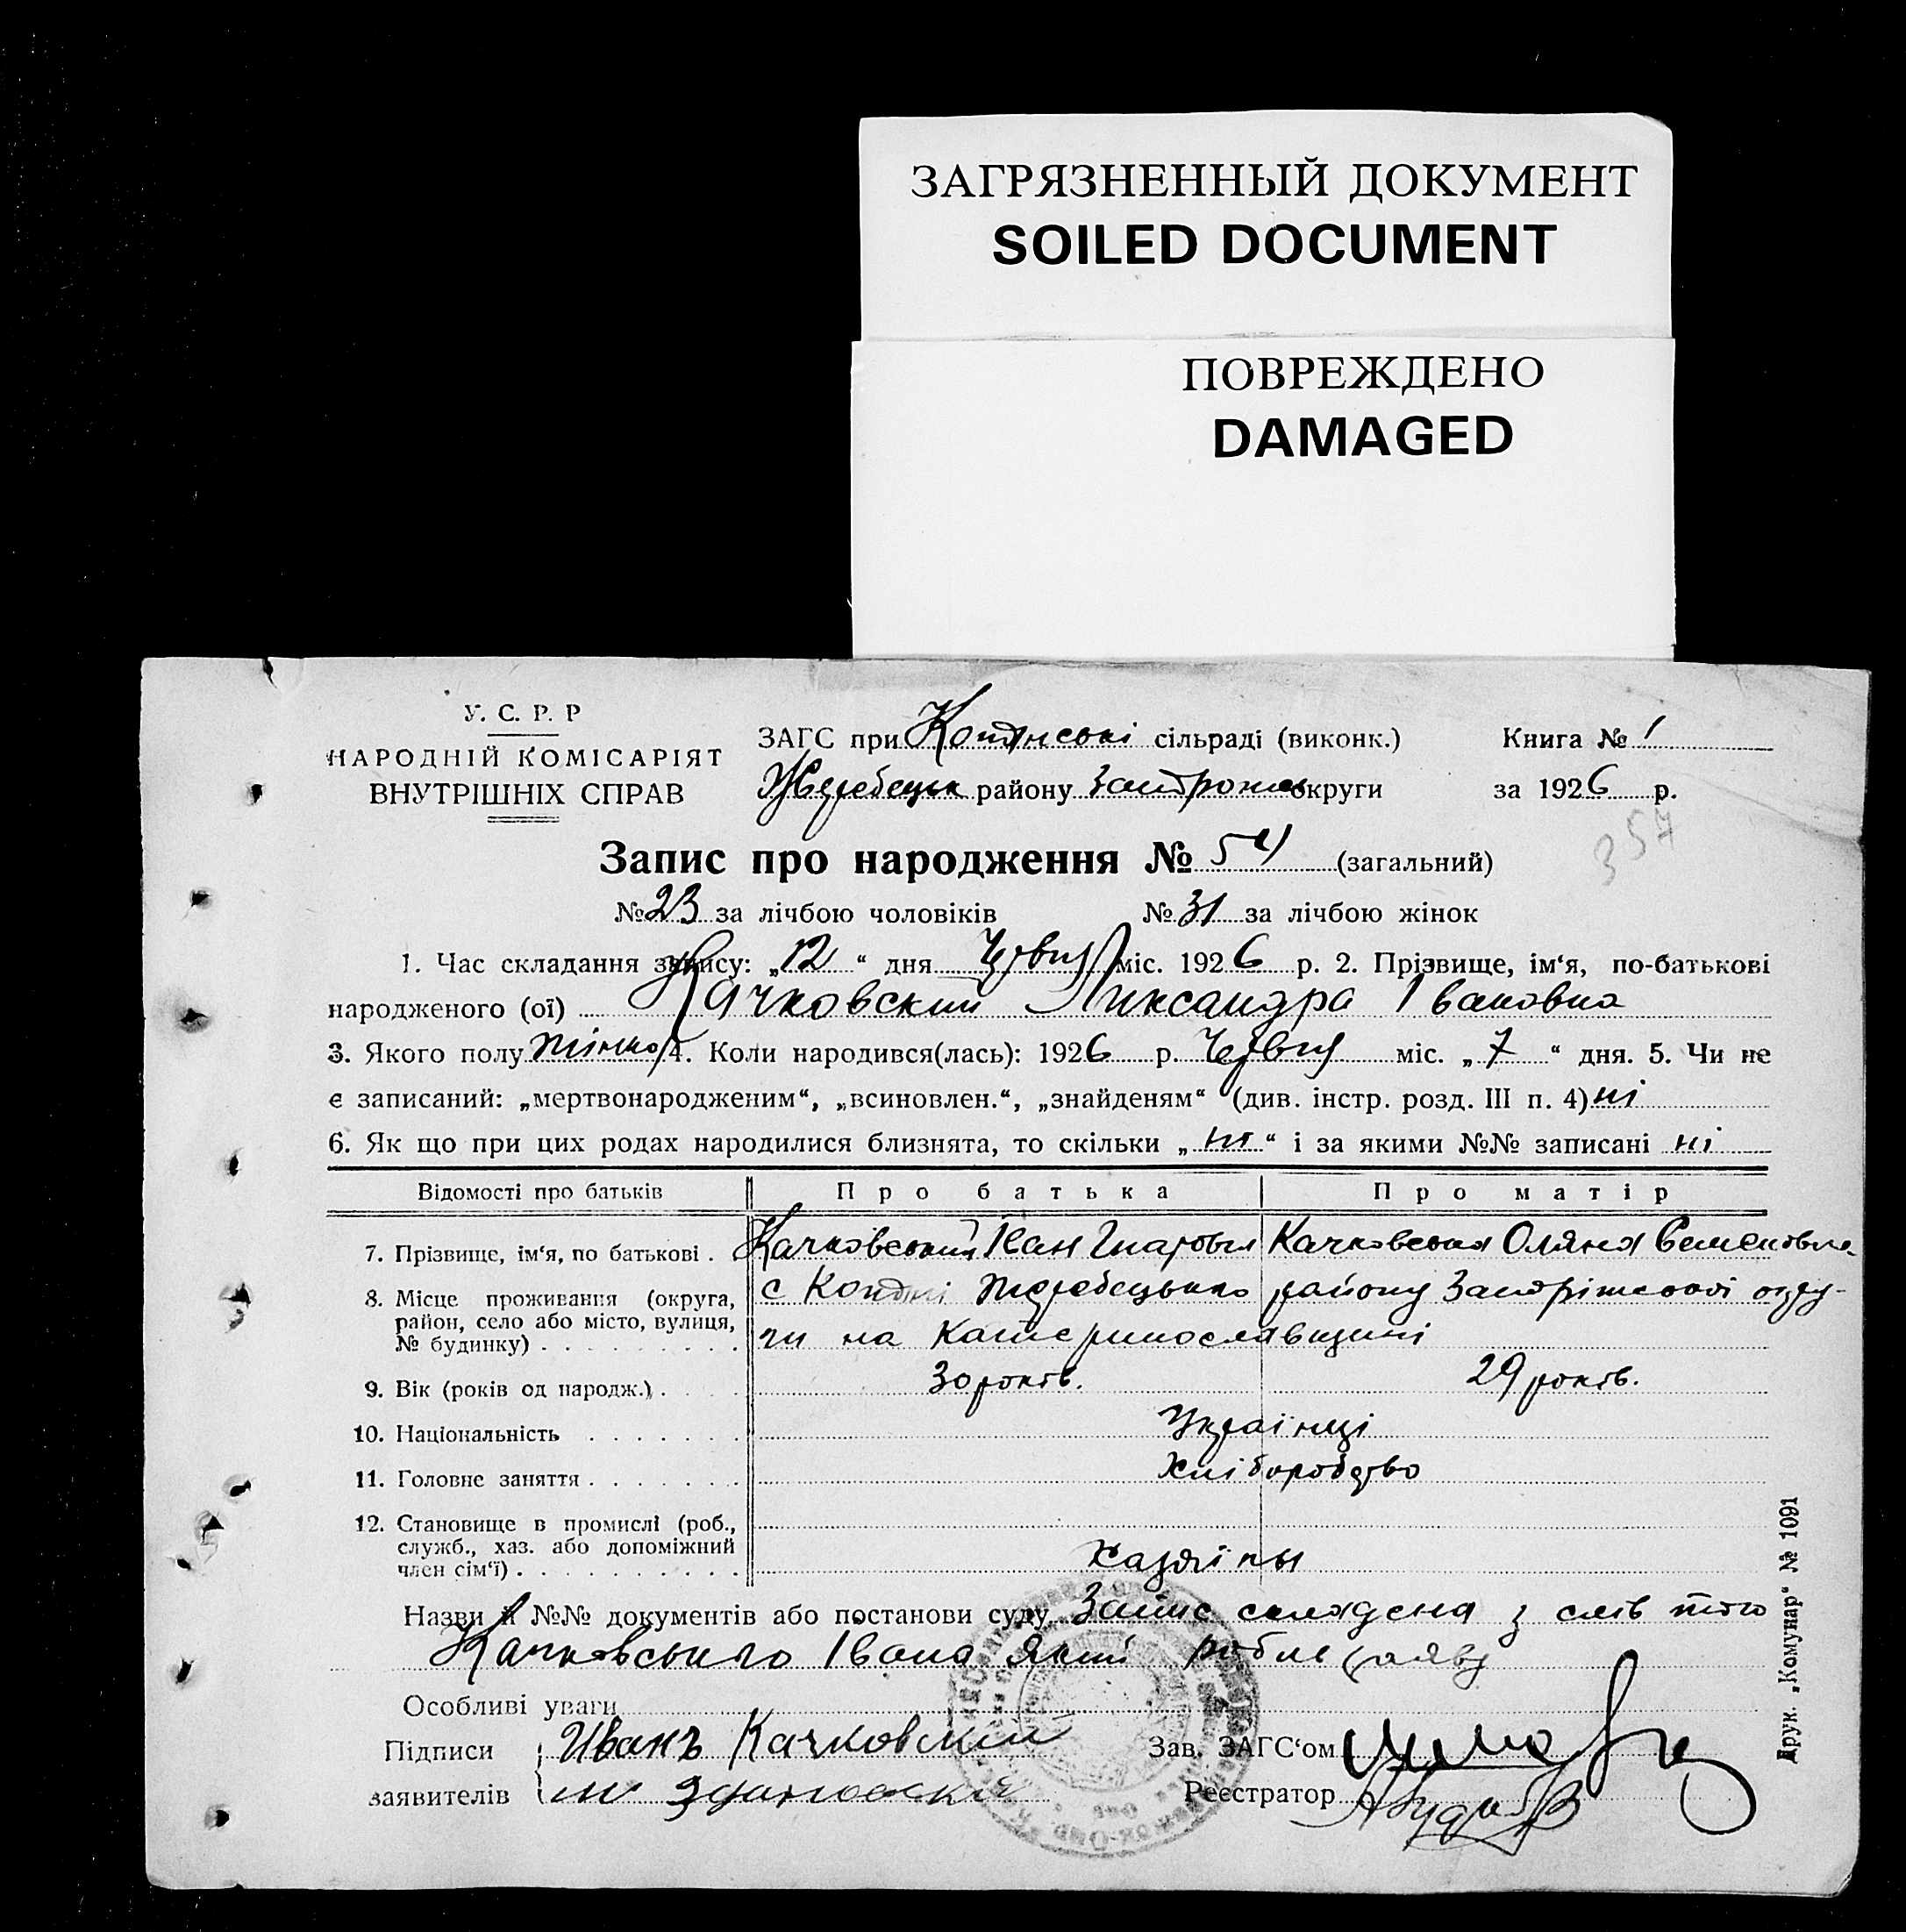 ЗАГРЯЗНЕННЫЙ ДОКУМЕНТ
SOILED DOCUMENT
ПОВРЕЖДЕНО
DAMAGED
У. С. Р. Р
НАРОДНІЙ КОМІСАРІЯТ
ВНУТРІШНІХ СПРАВ
ЗАГС при сільраді (виконк.) Книга № 1
Жеребецьк району округи за 1926 р.
357
Запис про народження № 54 (загальний)
№ 23 за лічбою чоловіків № 31 за лічбою жінок
1. Час складання запису: „12“ дня Червня міс. 1926 р. 2. Прізвище, ім‘я, по-батькові
народженого (ої) Качковский Ликсандра Івановна
3. Якого полу жіноч 4. Коли народився(лась): 1926 р. Червня міс. „7“ дня. 5. Чи не
є записаний: „мертвонародженим“, „всиновлен.“, „знайденям“ (див. інстр. розд. III п. 4) ні
6. Як що при цих родах народилися близнята, то скільки „ні“ і за якими №№ записані ні
Відомості про батьків Про батька Про матір
7. Прізвище, ім‘я, по батькові . Качковський Іван Качковська Оляна Семеновна
8. Місце проживання (округа, с Жеребецького району округу-
район, село або місто, вулиця,
№ будинку) ги на Катеринославщині
9. Вік (років од народж.) 30 років. 29 років.
10. Національність Українці
11. Головне заняття Хліборобство
12. Становище в промислі (роб.,
служб., хаз. або допоміжний
член сім‘ї) Хазяїны
Назви й №№ документів або постанови суду Запис складена з слів
Качковського Івана який робле заяву
Особливі уваги
Підписи Иванъ Качковский Зав. ЗАГС‘ом
заявителів Реєстратор
Друк. „Комунар“ № 1091